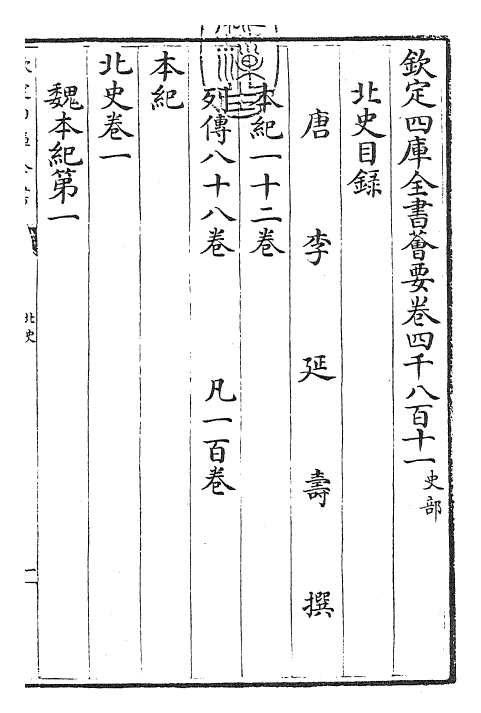 欽定四庫全書薈要卷四千八百十一史部
北史目錄
唐李延壽撰
本紀一十二卷
列傳八十八卷 凡一百卷
本紀
北史卷一
魏本紀第一
北史